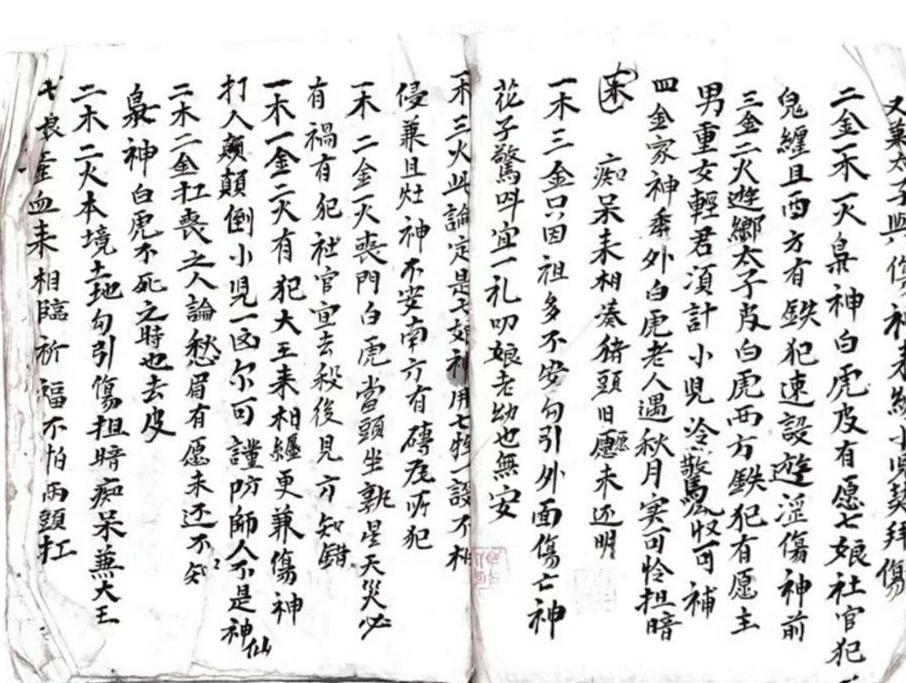 又棄太子與傷神來纏小児契拜傷
二金一木一火梟神白虎皮有愿七娘社官犯
鬼纏且西方有鉄犯速設遊淫傷神前
三金二火遊鄉太子皮白虎西方鉄犯有愿主
男重女輕君須計小児冷驚風収可補
四金家神香外白虎老人遇秋月实可怜担暗
痴呆来相湊猪頭旧愿未还明
木
一木三金只因祖多不安勾引外面傷亡神
花子驚呌宜一礼叨娘老幼也無安
一木三火此論定是七娘神用七牲一設不相
侵兼且灶神不安南方有磚瓦所犯
一木二金一火喪門白虎當頭坐孰星天災必
有禍有犯社官宜去殺後見方知錯
一木一金二火有犯大王来相纏更兼傷神
打人癲顛倒小児一凶尔可謹防師人不是神仙
二木二金扛喪之人論愁眉有愿未还不知
梟神白虎不死之時也去皮
二木二火本境土地勾引傷担暗痴呆兼大王
七娘産血来相臨祈福不怕両頭扛